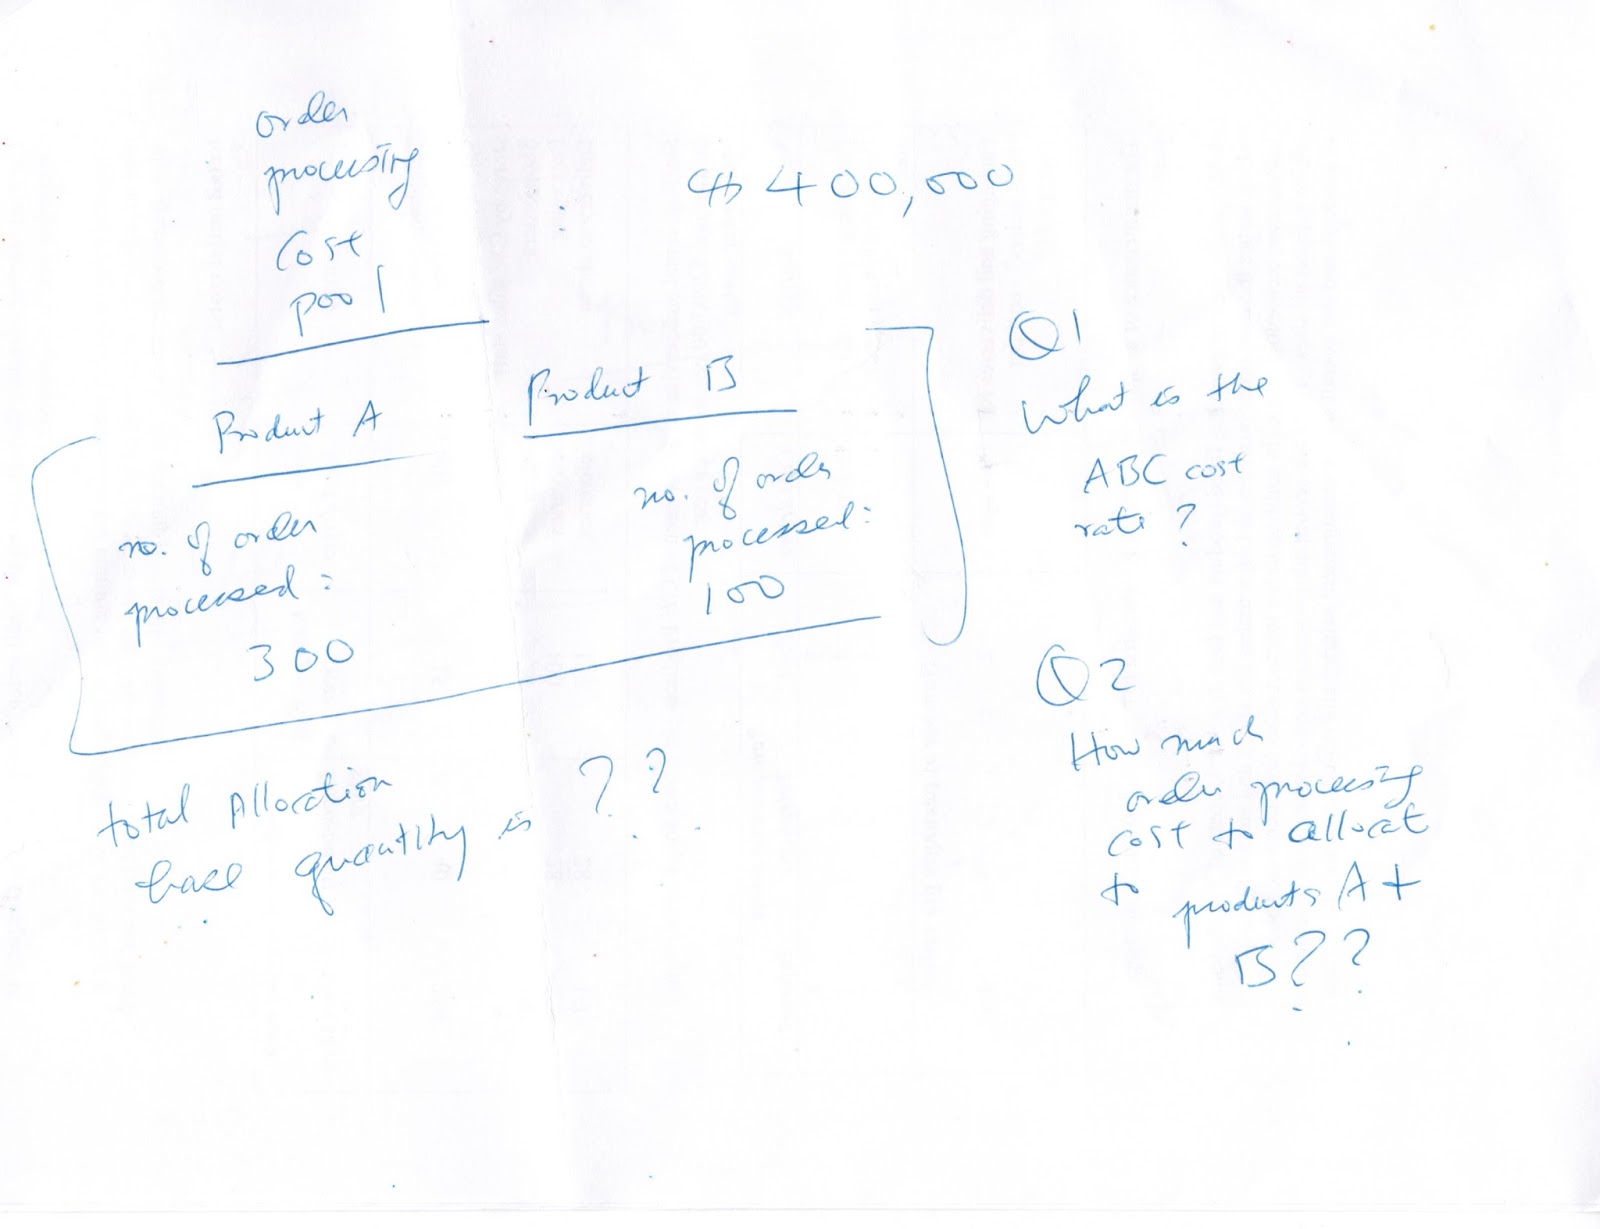 order
processing
Cost
pool
: $ 400,000
Product A
no. of order
processed:
300
Product B
no. of order
processed:
100
total Allocation
base quantity is ??
Q1
What is the
ABC cost
rate?
Q2
How much
order processing
cost to allocat
to products A +
B??